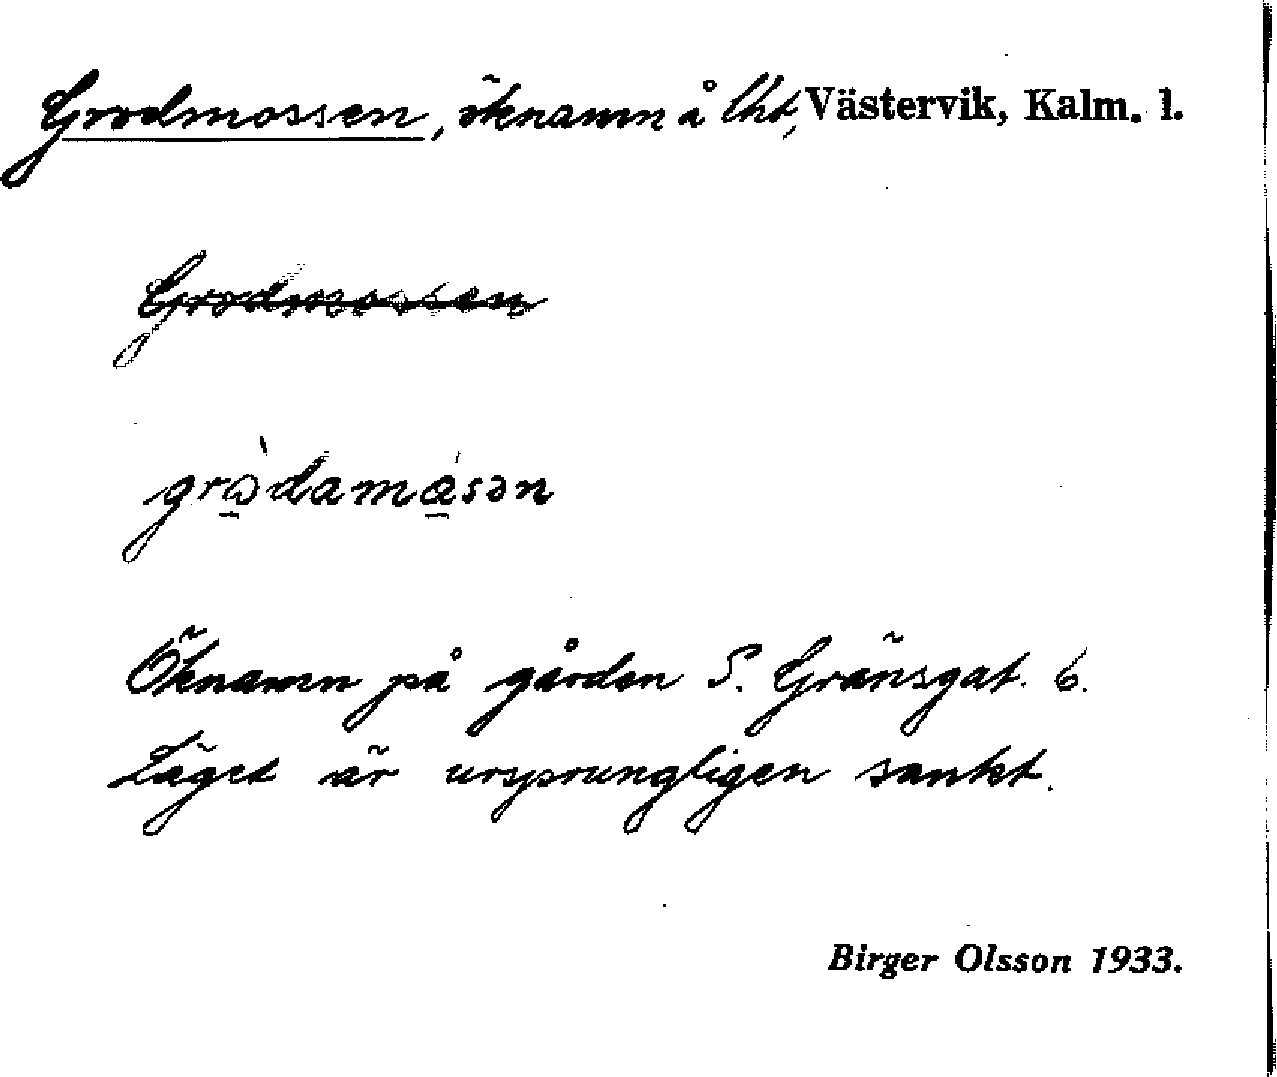 Grodmossen, öknamn å lht, Västervik, Kalm. l.
Grodmossen
grodamåsən
Öknamn på gården S. Gränsgat. 6.
Läget är ursprungligen sankt.
Birger Olsson 1933.